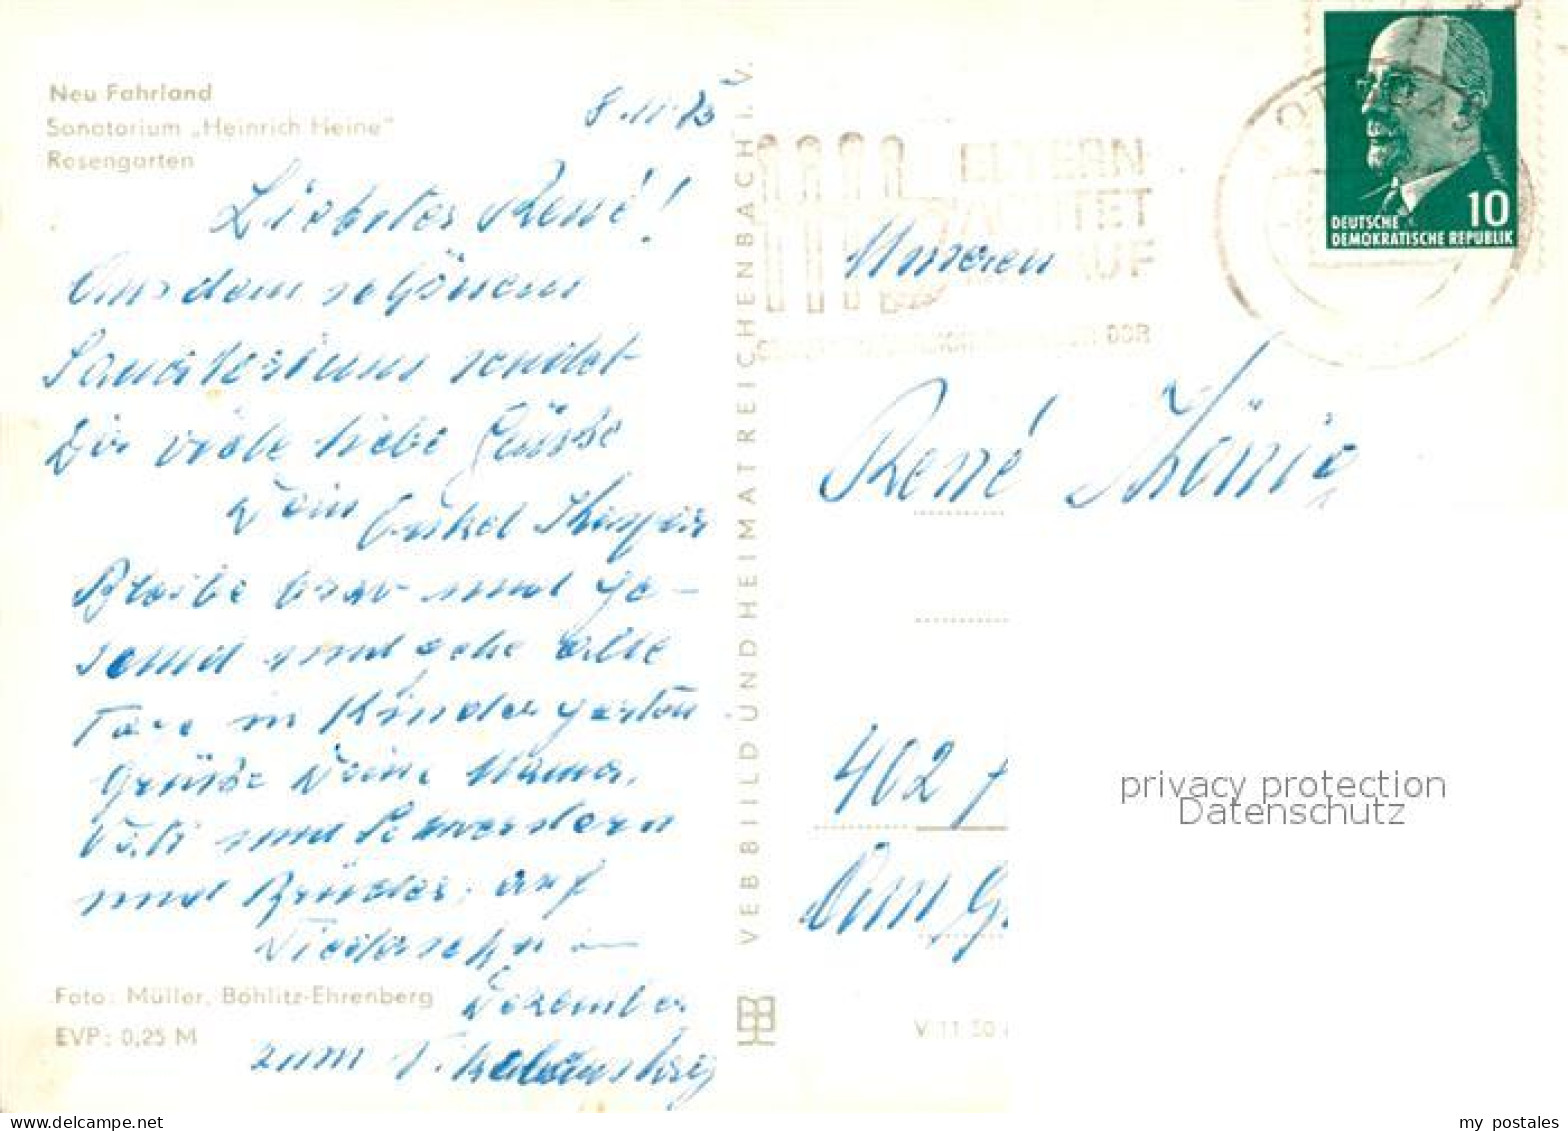 Neu Fahrland
Sanatorium „Heinrich Heine"
Rosengarten
8.11.75
Liebster René!
Aus dem schönen
Sanatorium sendet
Dir viele liebe Grüsse
Dein Onkel
Bleibe brav und ge-
sund und gehe alle
Tage in Kindergarten
Grüße Deine Mama,
Vati und Schwestern
und Brüder, auf
Wiedersehn im
Dezember
zum
Foto: Müller, Böhlitz-Ehrenberg
EVP: 0,25 M
VEB BILD UND HEIMAT REICHENBACH I. V.
ELTERN
ACHTET
AUF
DDR
DEUTSCHE
DEMOKRATISCHE REPUBLIK
10
Unseren
René König
402
Am
V 11 50
privacy protection
Datenschutz
delcampe.net
my_postales